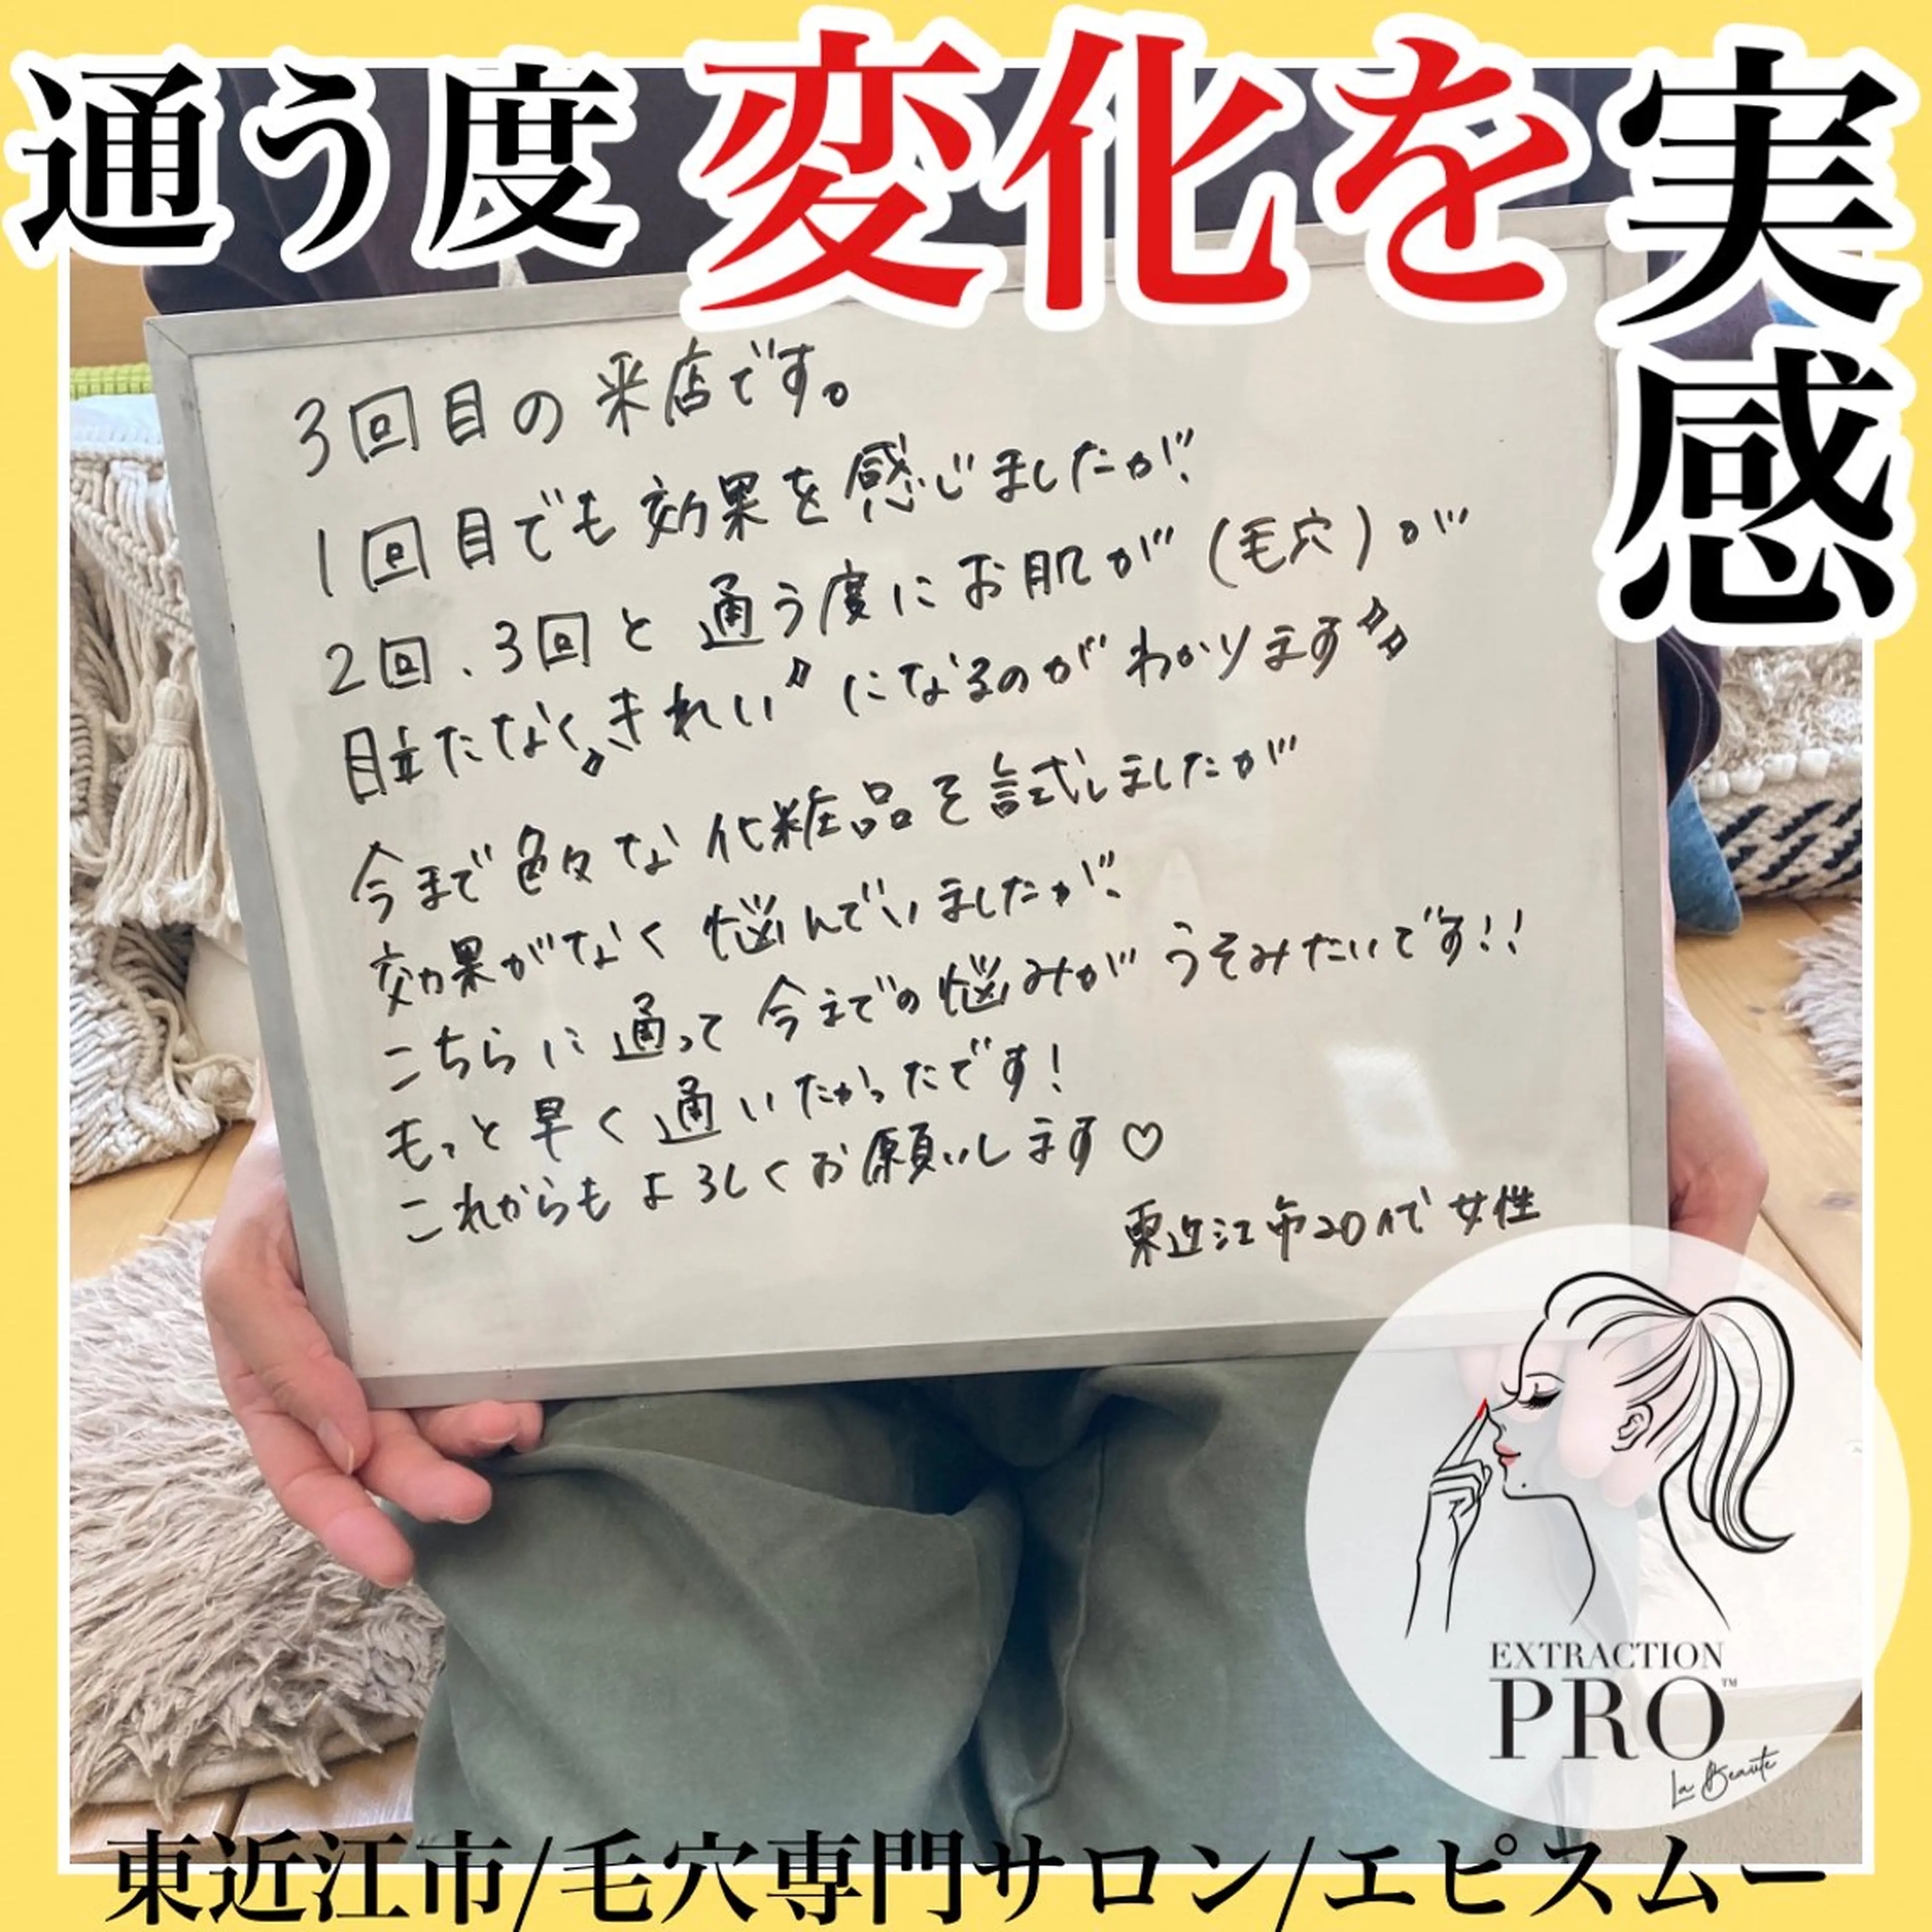 通う度変化を実感
3回目の来店です。
1回目でも効果を感じましたが、
2回、3回と通う度にお肌が(毛穴)が
目立たなく〝きれい〞になるのがわかります〃
今まで色々な化粧品を試しましたが
効果がなく悩んでいましたが、
こちらに通って今までの悩みがうそみたいです!!
もっと早く通いたかったです!
これからもよろしくお願いします♡
東近江市20代女性
EXTRACTION
PRO™
La Beaute
東近江市/毛穴専門サロン/エピスムー